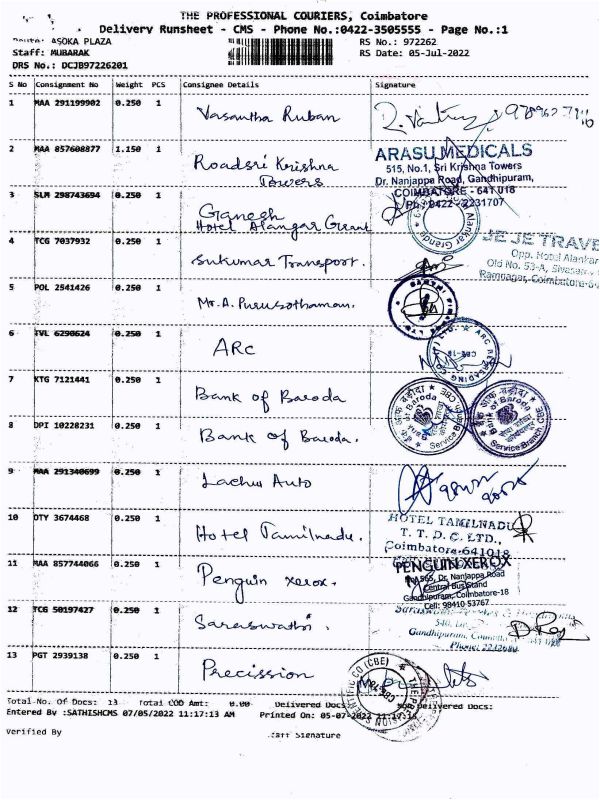 THE PROFESSIONAL COURIERS, Coimbatore
Delivery Runsheet - CMS - Phone No.:0422-3505555 - Page No.:1
ASOKA PLAZA
RS No.: 972262
Staff: MUBARAK
RS Date: 05-Jul-2022
DRS No.: DCJB97226201
S No Consignment No Weight PCS Consignee Details Signature
1 MAA 291199902 0.250 1 Vasantha Ruban
2 MAA 857608877 1.150 1 Roadsri Krishna Towers
ARASU MEDICALS
515, No.1, Sri Krishna Towers
Dr. Nanjappa Road, Gandhipuram,
COIMBATORE - 641 018
Ph: 0422 - 2231707
3 SLM 298743694 0.250 1 Ganesh
Hotel Alangar Grant
Alankar Grande
4 TCG 7037932 0.250 1 Sukumar Transport.
JE JE TRAVE
Opp. Hotel Alankar
Old No. 53-A, Sivasamy
Ramnagar, Coimbatore-6
5 POL 2541426 0.250 1 Mr. A. Purusothaman.
6 TVL 6290624 0.250 1 ARC
7 KTG 7121441 0.250 1 Bank of Baroda
8 DPI 10228231 0.250 1 Bank of Baroda.
Bank of Baroda
Service Branch, CBE
9 MAA 291340699 0.250 1 Lachu Auto
10 DTY 3674468 0.250 1 Hotel Tamilnadu.
HOTEL TAMILNADU
T. T. D. C. LTD.,
Coimbatore-641018
11 MAA 857744066 0.250 1 Penguin xerox.
PENGUIN XEROX
Dr. Nanjappa Road
Central Bus Stand
Gandhipuram, Coimbatore-18
Cell: 98410 53767
12 TCG 50197427 0.250 1 Saraswathi.
13 PGT 2939138 0.250 1 Precission
Total No. Of Docs: 13 Total COD Amt: 0.00 Delivered Docs: Non Delivered Docs:
Entered By :SATHISHCMS 07/05/2022 11:17:13 AM Printed On: 05-07-2022 11:17:15
Verified By
Staff Signature